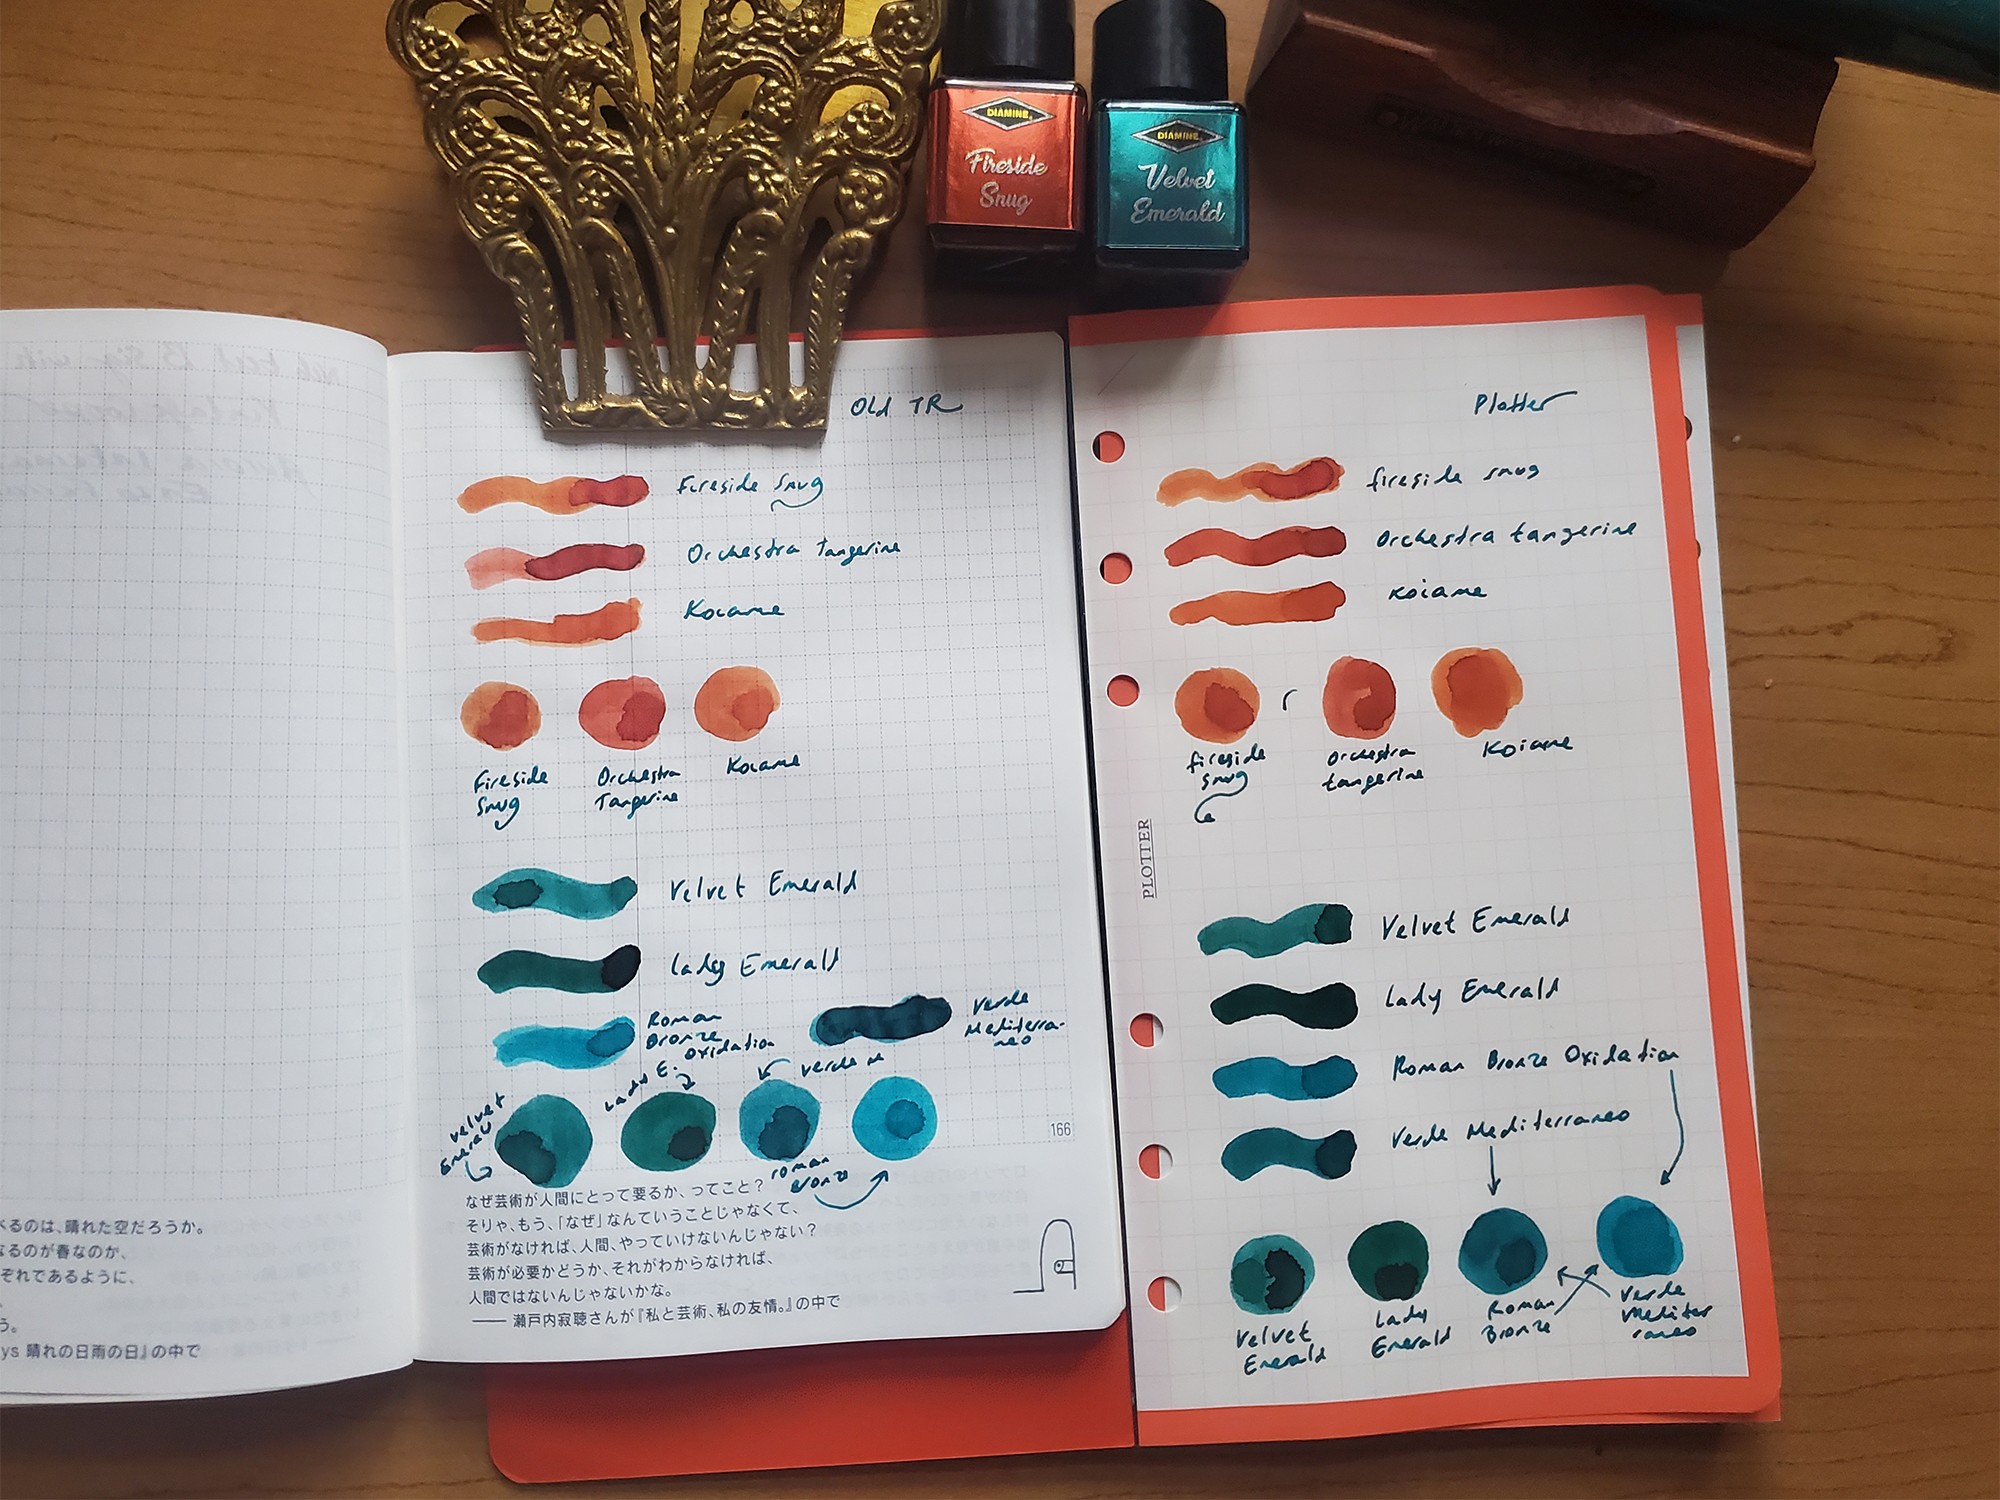 DIAMINE
Fireside
Snug
DIAMINE
Velvet
Emerald
べるのは、晴れた空だろうか。
なるのが春なのか、
ぞれであるように、
う。
ys 晴れの日雨の日』の中で
Old TR
Fireside Snug
Orchestra Tangerine
Koiame
Fireside
Snug
Orchestra
Tangerine
Koiame
Velvet Emerald
Lady Emerald
Roman
Bronze
Oxidation
Verde
Mediterra-
neo
Velvet
Emerald
Lady E.
Verde M
Roman
Bronze
166
なぜ芸術が人間にとって要るか、ってこと？
そりゃ、もう、「なぜ」なんていうことじゃなくて、
芸術がなければ、人間、やっていけないんじゃない？
芸術が必要かどうか、それがわからなければ、
人間ではないんじゃないかな。
── 瀬戸内寂聴さんが『私と芸術、私の友情。』の中で
Plotter
fireside snug
Orchestra tangerine
Koiame
fireside
snug
Orchestra
tangerine
Koiame
PLOTTER
Velvet Emerald
Lady Emerald
Roman Bronze Oxidation
Verde Mediterraneo
Velvet
Emerald
Lady
Emerald
Roman
Bronze
Verde
Mediter
raneo